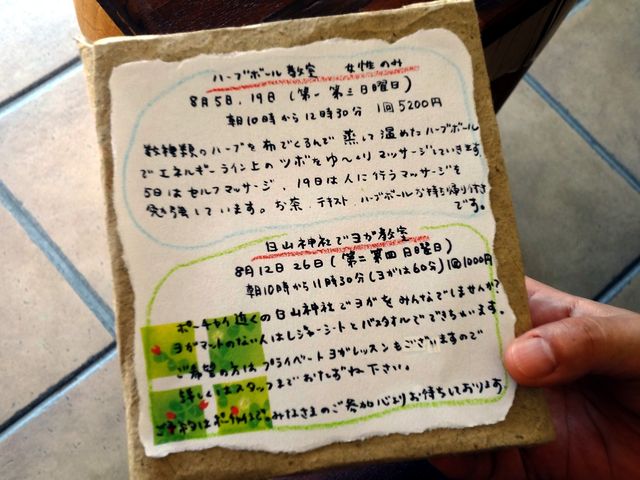 ハーブボール教室 女性のみ
8月5日、19日 (第一 第三日曜日)
朝10時から12時30分 1回5200円
数種類のハーブを布でくるんで 蒸して温めたハーブボール
でエネルギーライン上のツボをゆ〜くりマッサージしていきます。
5日はセルフマッサージ、19日は人に行うマッサージを
勉強しています。お茶、テキスト、ハーブボールお持ち帰り付き
です。
白山神社でヨガ教室
8月12日 26日 (第二 第四 日曜日)
朝10時から11時30分 (ヨガは60分) 1回1000円
ポーチャイ近くの白山神社でヨガをみんなでしませんか?
ヨガマットのない人はレジャーシートとバスタオルでできちゃいます。
ご希望の方はプライベートヨガレッスンもございますので
詳しくはスタッフまでおたずね下さい。
ご予約はポーチャイまで。みなさまのご参加心よりお待ちしております